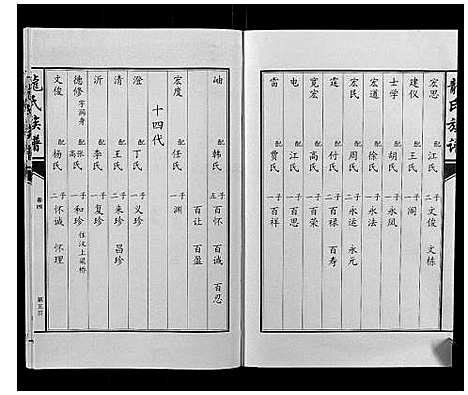 龍氏族譜
宏思 配江氏 二子 文俊 文棟
建仪 配王氏 一子 阁
士学 配胡氏 一子 永凤
宏道 配徐氏 一子 永法
宏氏 配周氏 二子 永运 永元
霆 配付氏 二子 百禄 百寿
寬宏 配高氏 一子 百荣
电 配江氏 一子 百思
雷 配贾氏 一子 百祥
岫 配韩氏 五子 百怀 百诚 百忍
百让 百盈
宏度 配任氏 一子 渊
十四代
澄 配丁氏 一子 义珍
清 配王氏 二子 来珍 昌珍
沂 配李氏 一子 复珍
德修 字润身 配高氏 張氏 一子 和珍 住汶上梁桥
文俊 配杨氏 二子 怀诚 怀理
龍氏族譜
卷四